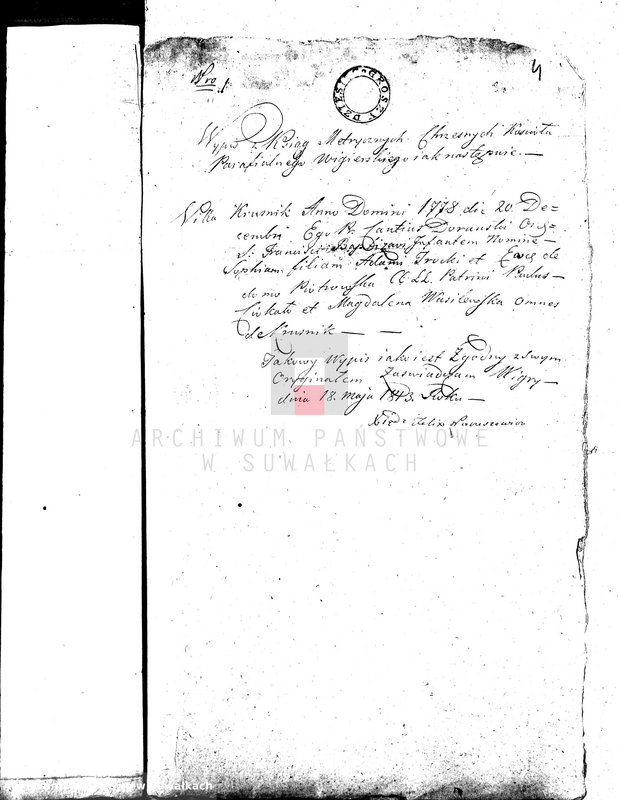 Nro 1
4
DZIESIĘC GROSZY
Wypis z Ksiąg Metrycznych Chrzesnych Koscioła
Parafialnego Wigierskiego iak następuie. —
Villa Krusnik Anno Domini 1778 die 20. De=
cembri Ego Pr. Cantius Dorauski Ord=
S. Francisci Baptizavi Infantem Nomine
Sophiam filiam Adami Trocki et Evae de
domo Piotrowska CC. LL. Patrini
et Magdalena Wasilewska omnes
de Krusnik — —
Jakowy Wypis iako iest Zgodny z swym
Oryginałem Zaswiadczam Wigry —
dnia 18. Maja Roku —
Xiądz Felix
ARCHIWUM PAŃSTWOWE
W SUWAŁKACH
w Suwałkach